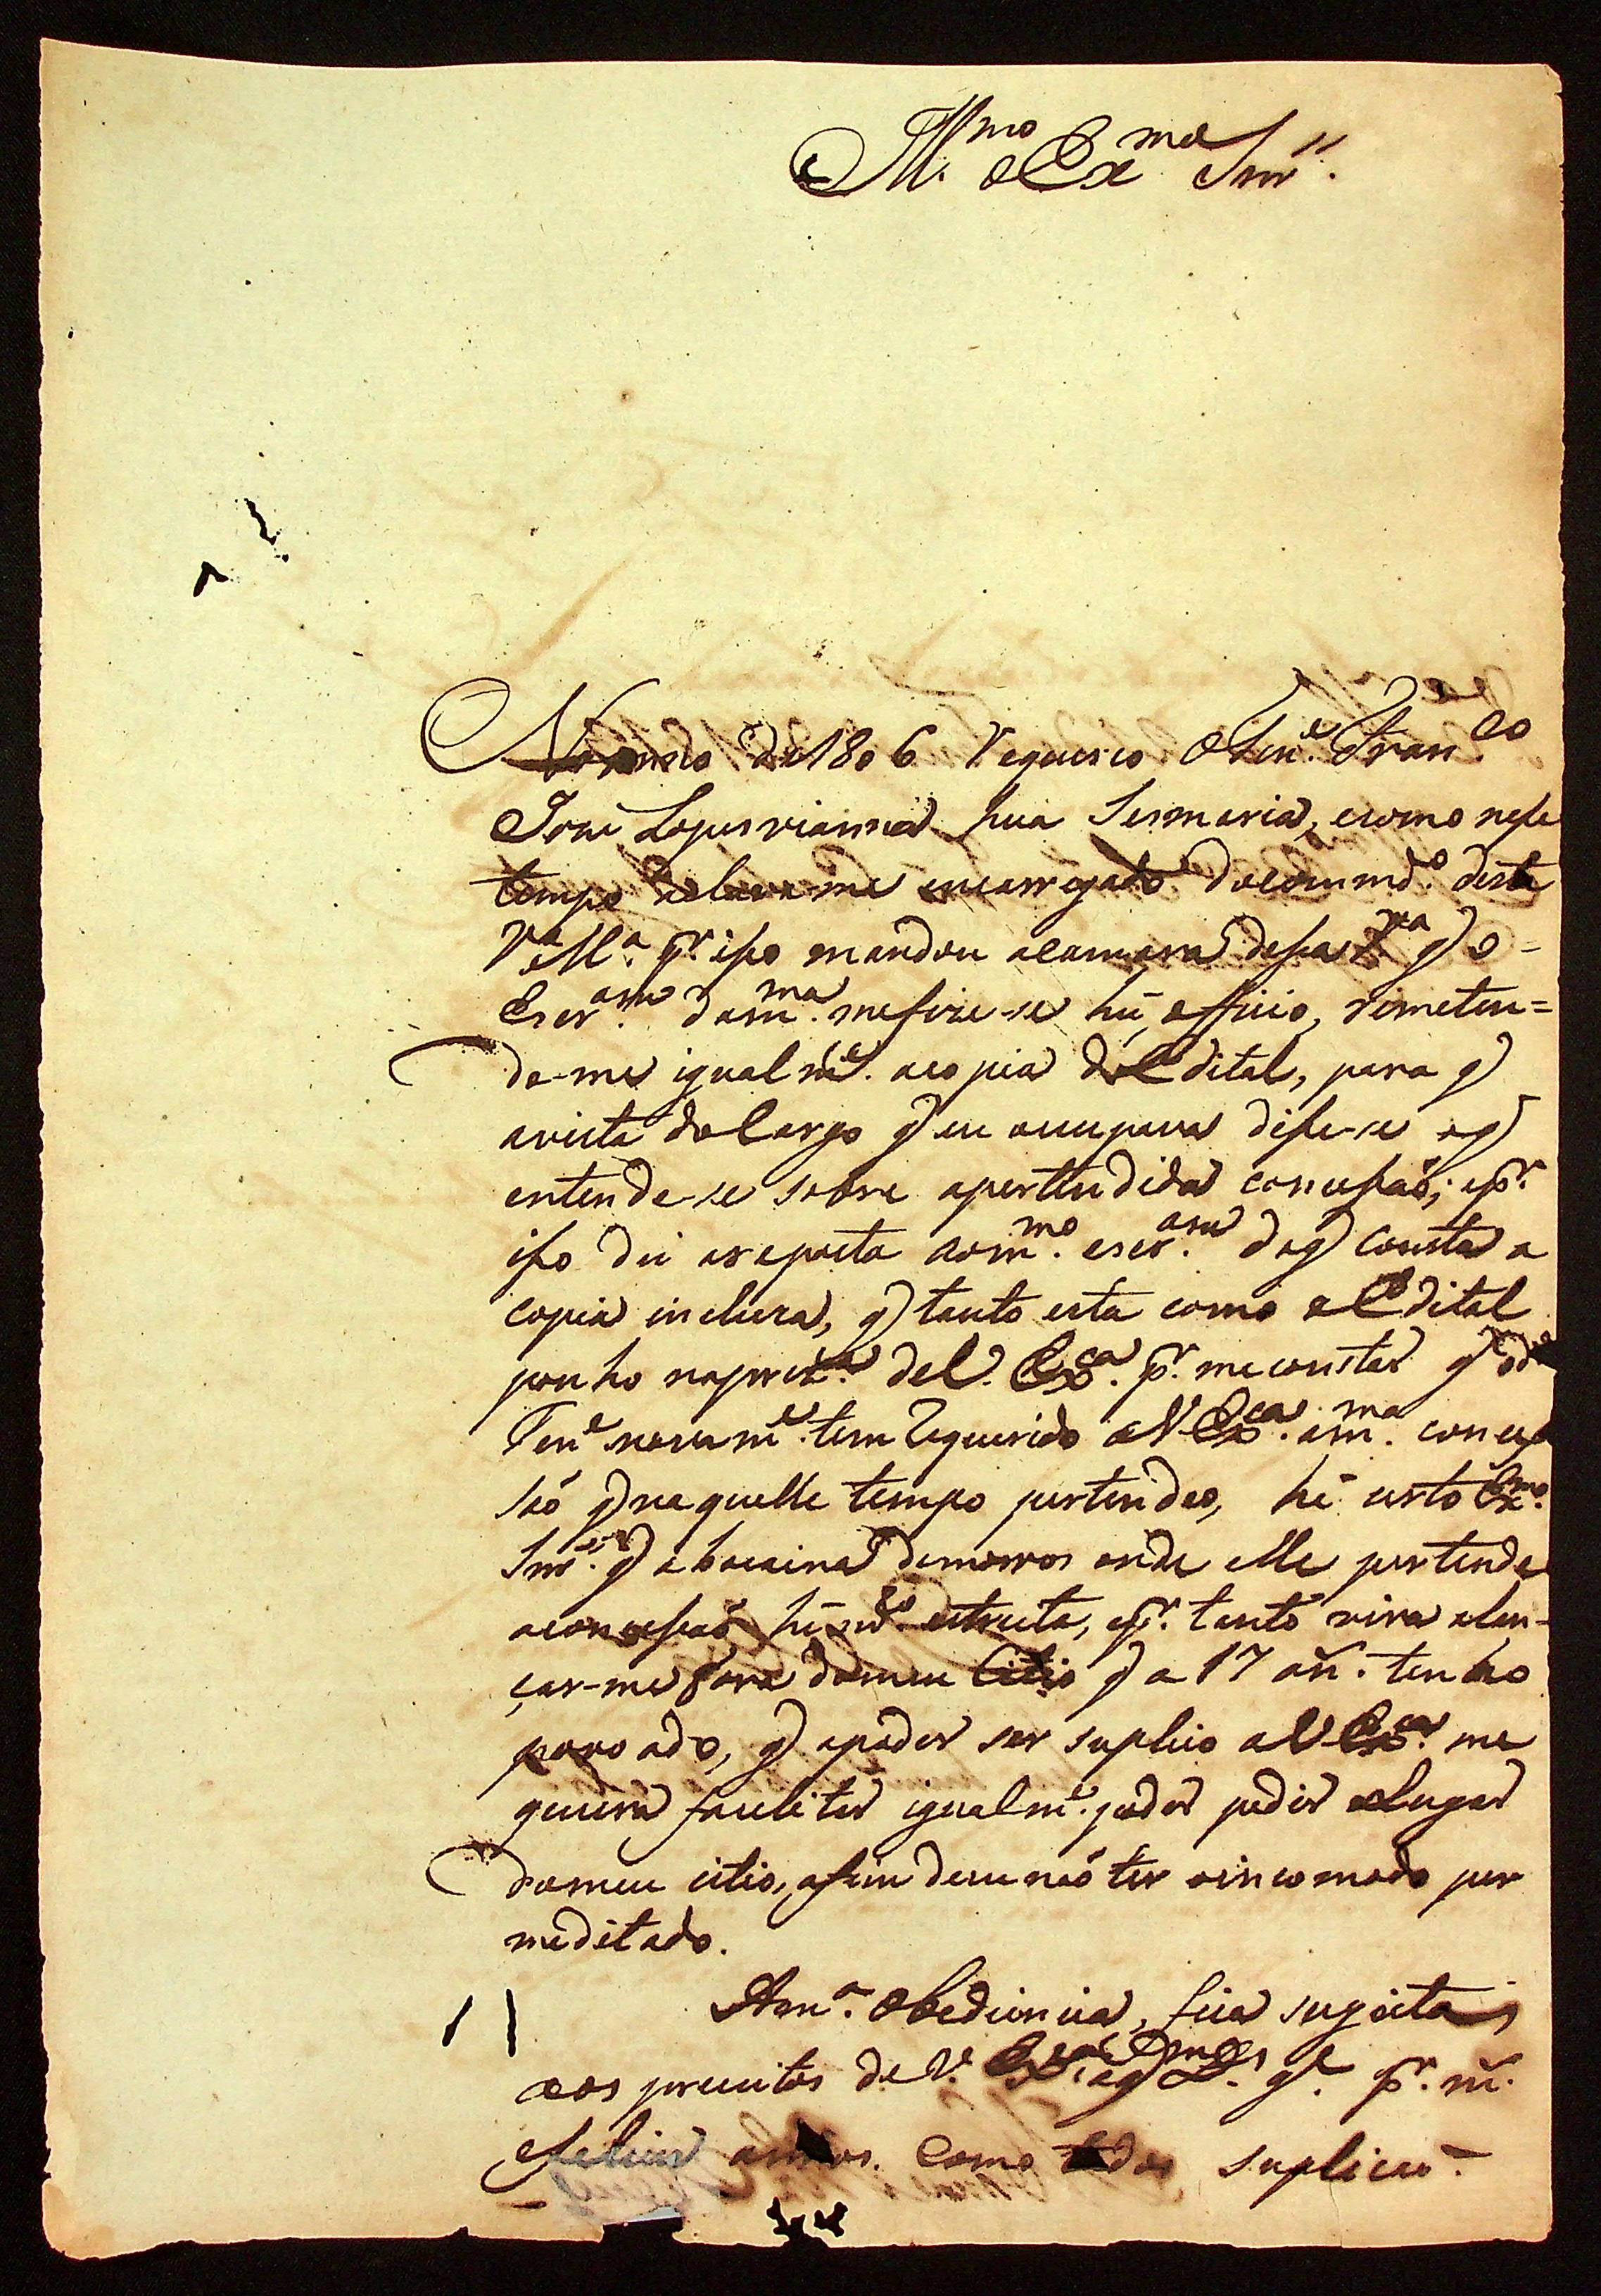 Ill.mo e Ex.mo Snr̃.
No anno de 1806 requereo o Ten.e Fran.co
Joze Lopes vianna hua Sesmaria, e como nese
tempo achava-me encarregado do Comm.do desta
V.a M.a p.r iso mandou a Camara desa V.a q o =
Escr.am da m.ma me fize-se hũ officio, remeten=
do-me igual m.e a copia do Edital, para q
avista do Cargo q eu ocupava dise-se o q
entende-se sobre a pertendida concesaõ; e p.r
iso dei a reposta ao m.mo escr.am do q consta a
copia incluza, q tanto esta como o Edital
ponho na prez.a de V. Ex.ca p.r me constar q o d.o
Ten.e novam.e tem requerido a V. Ex.ca a m.ma conces
saõ q naquelle tempo pertendeo, hé certo Ex.mo
Snr̃. q a bocaina de morros onde elle pertende
a concesaõ hé m.to estreita, e p.r tanto vira alan-
çar-me fora do meu Citio q a 17 an̄. tenho
povoado, q a poder ser suplico a V. Ex.ca me
queira facilitar igualm.e poder pedir o lugar
do meu citio, afim de eu naõ ter o incomodo per
meditado.
A m.a obediencia, fica sugeita
aos preceitos de V. Ex.ca q D.s g.e p.r m.
felices annos. Como todos suplicaõ.